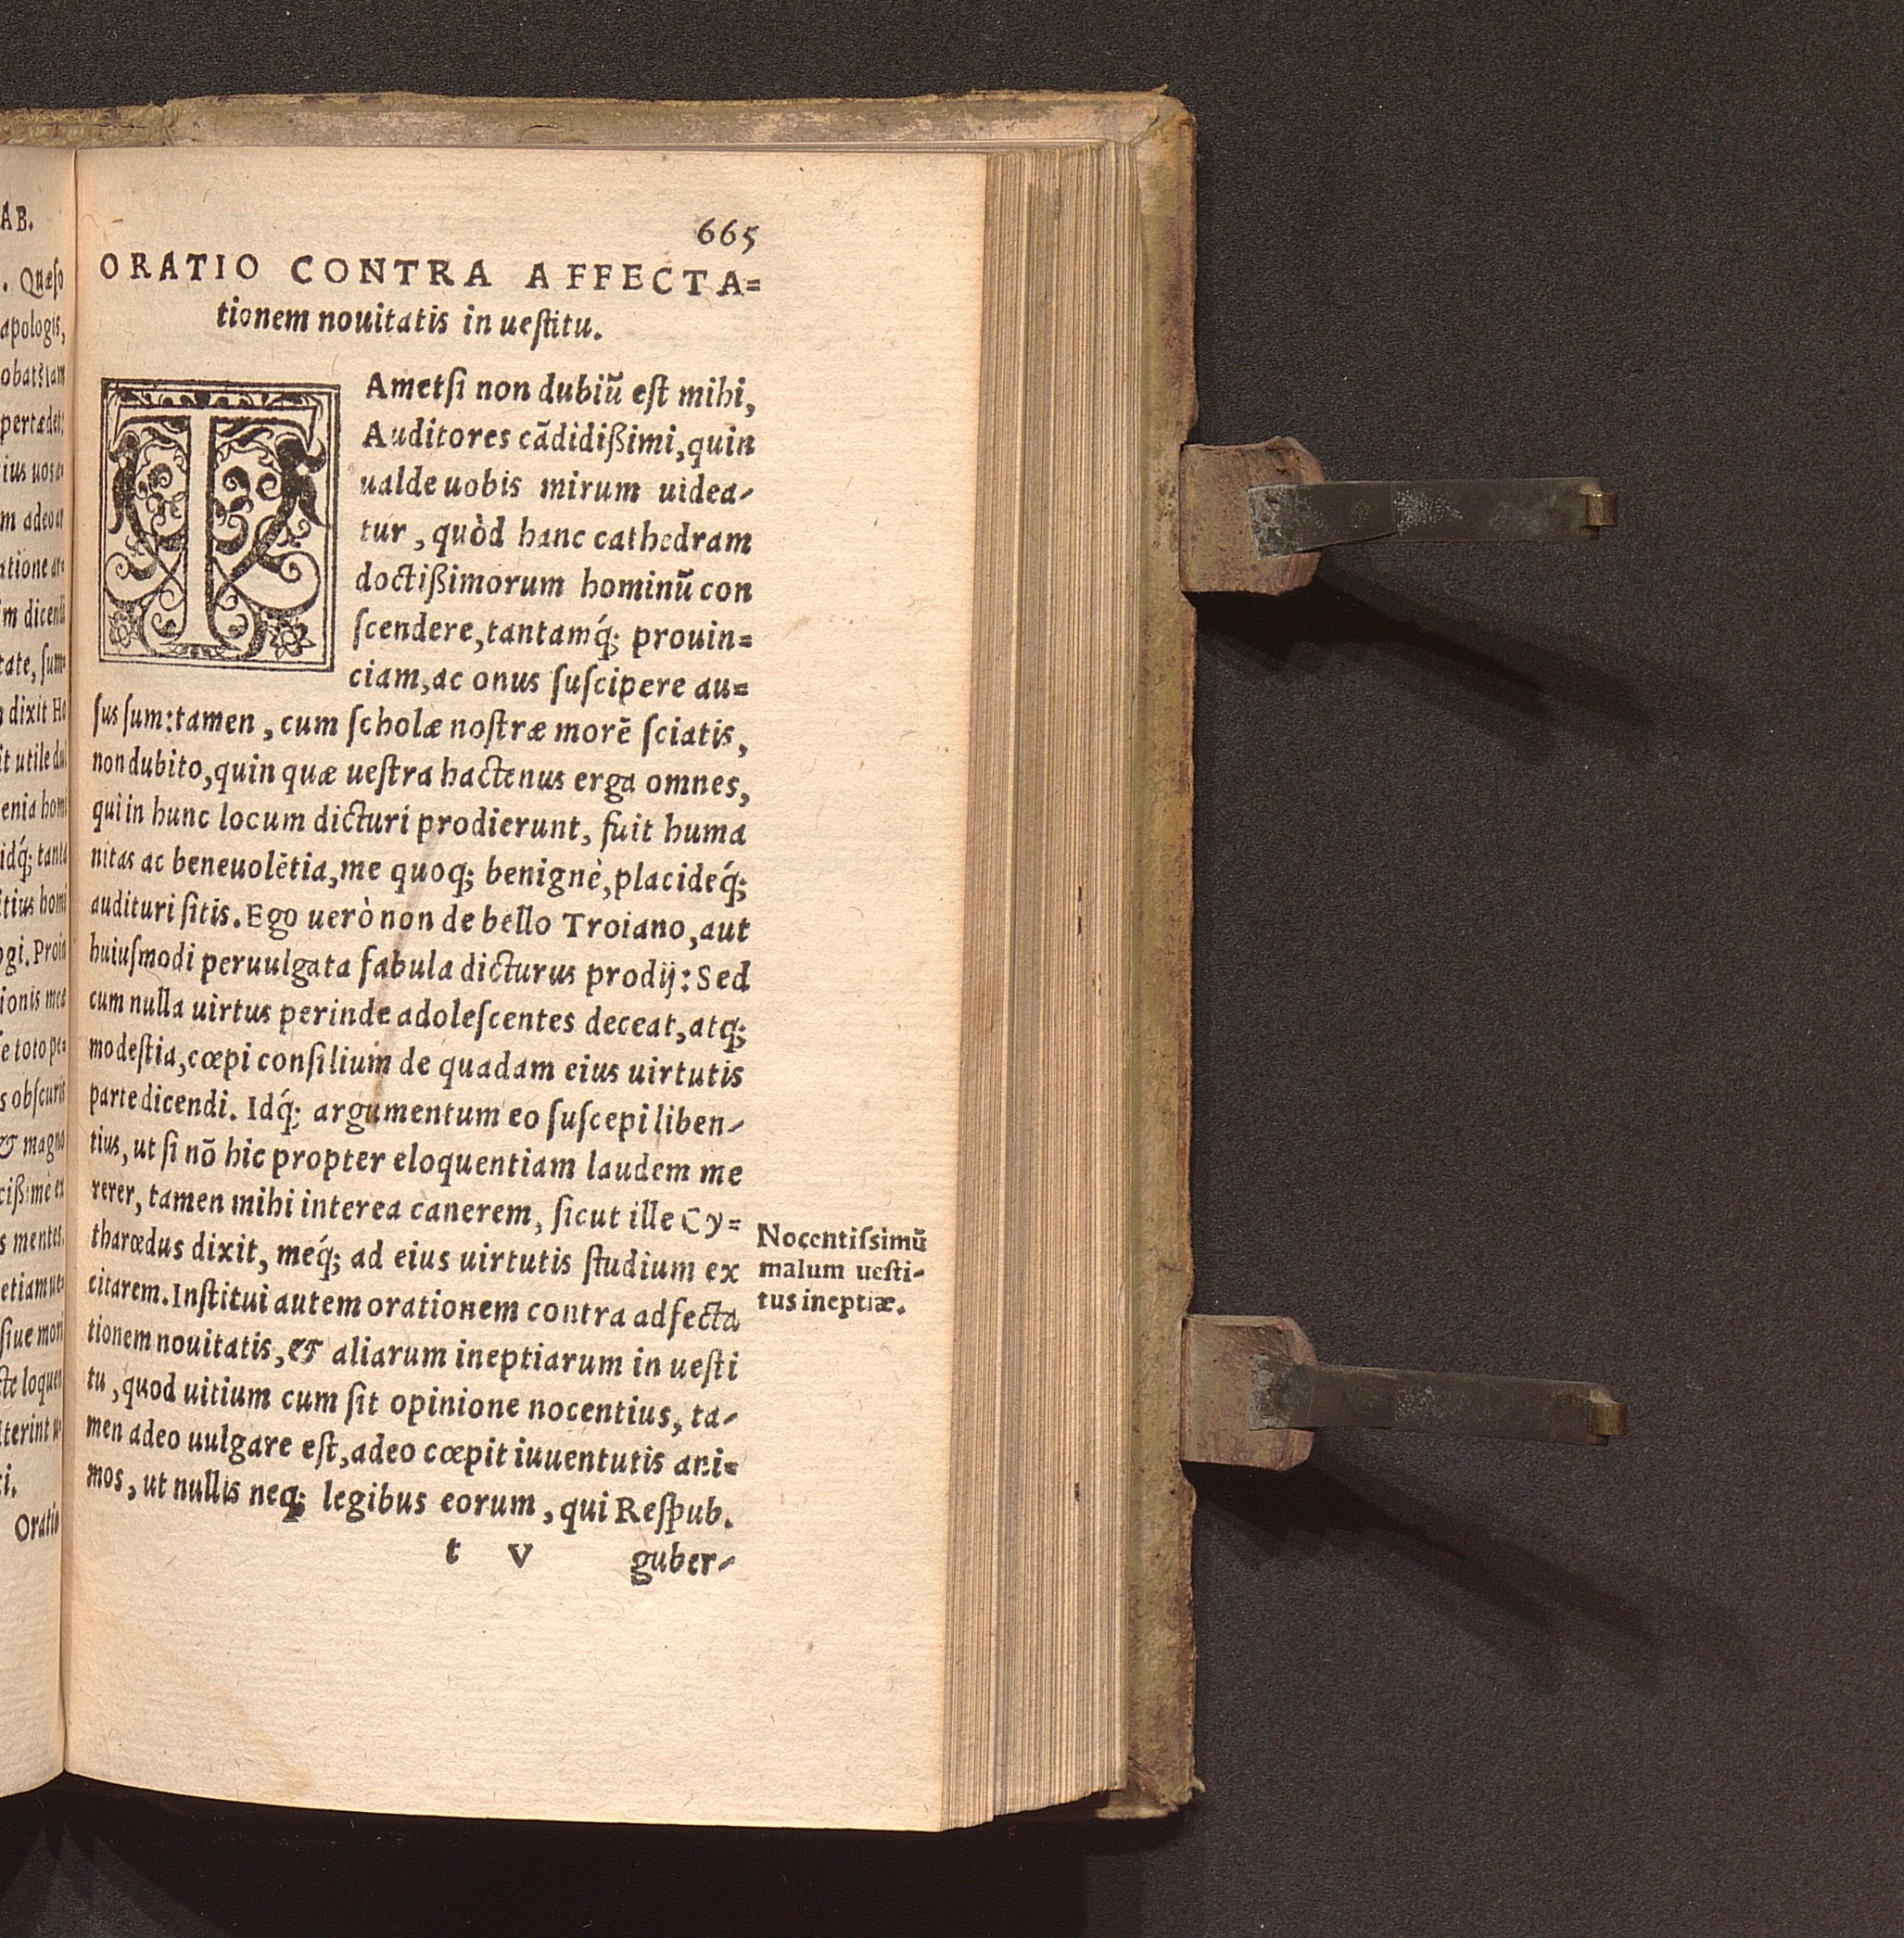 AB.
. Quæſo
apologis,
pertædet;
ius uos e-
m adeo ar
atione ar=
im dicendi
tate, ſum=
dixit Ho
it utile dul
enia homi
idq́; tanta
itius homi
ogi. Proin
ionis mea
e toto pe=
s obſcuris
& magna
cißimè ex
s mentes,
etiam ue=
ſiue mori
cte loquen
ti.
Oratio
665
ORATIO CONTRA AFFECTA=
tionem nouitatis in ueſtitu.
TAmetſi non dubiũ eſt mihi,
Auditores cãdidißimi, quin
ualde uobis mirum uidea-
tur, quòd hanc cathedram
doctißimorum hominũ con
ſcendere, tantamq́; prouin=
ciam, ac onus ſuſcipere au=
ſus ſum: tamen, cum ſcholæ noſtræ morẽ ſciatis,
non dubito, quin quæ ueſtra hactenus erga omnes,
qui in hunc locum dicturi prodierunt, fuit huma
nitas ac beneuolẽtia, me quoq; benignè, placideq́;
audituri ſitis. Ego uerò non de bello Troiano, aut
huiuſmodi peruulgata fabula dicturus prodij: Sed
cum nulla uirtus perinde adoleſcentes deceat, atq;
modeſtia, cœpi conſilium de quadam eius uirtutis
parte dicendi. Idq́; argumentum eo ſuſcepi liben-
tius, ut ſi nõ hic propter eloquentiam laudem me
rerer, tamen mihi interea canerem, ſicut ille Cy=
tharœdus dixit, meq́; ad eius uirtutis ſtudium ex
citarem. Inſtitui autem orationem contra adfecta
tionem nouitatis, & aliarum ineptiarum in ueſti
tu, quod uitium cum ſit opinione nocentius, ta-
men adeo uulgare eſt, adeo cœpit iuuentutis ani=
mos, ut nullis neq; legibus eorum, qui Reſpub.
t v guber-
Nocentiſsimũ
malum ueſti-
tus ineptiæ.